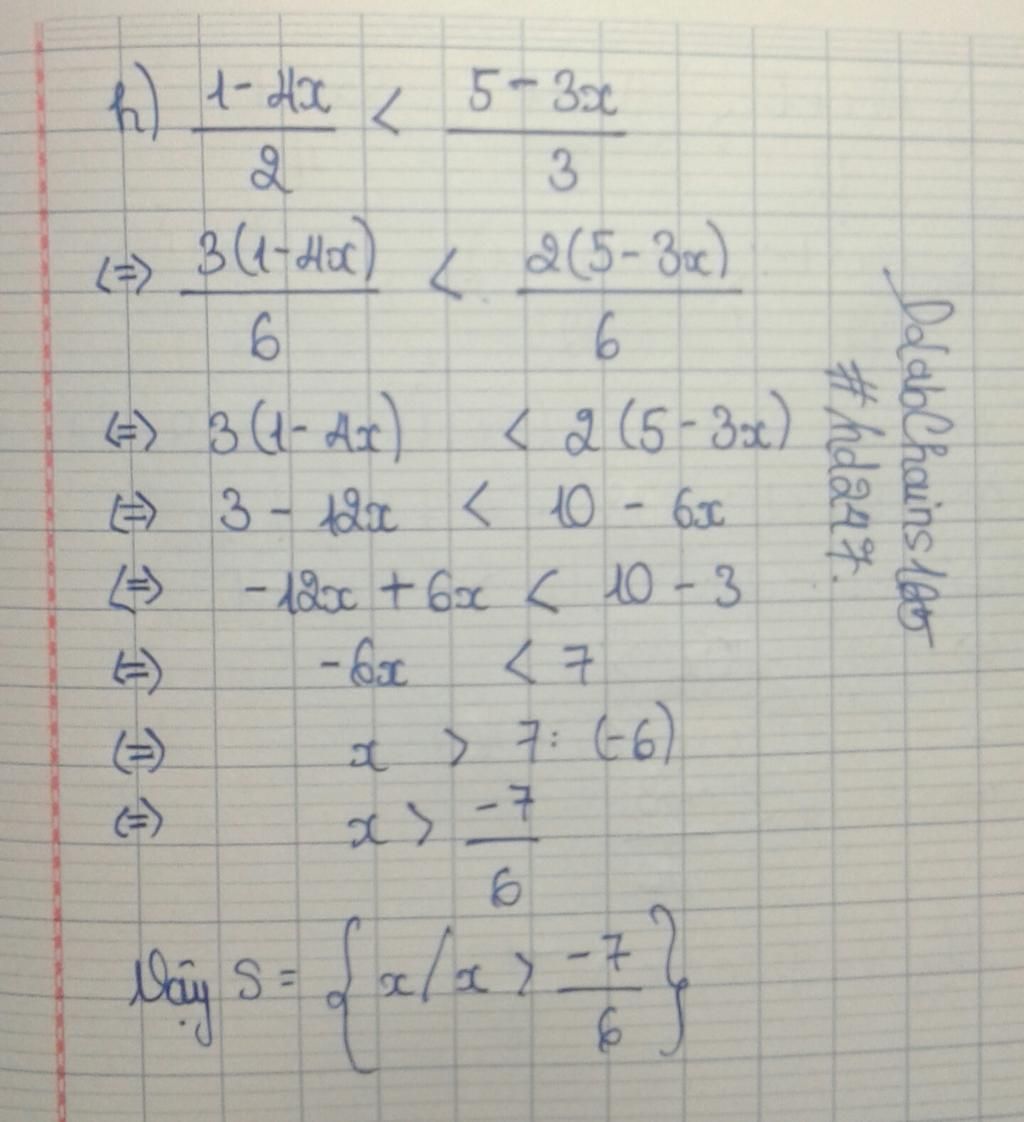 h) (1-4x)/2 < (5-3x)/3
<=> 3(1-4x)/6 < 2(5-3x)/6
<=> 3(1-4x) < 2(5-3x)
<=> 3 - 12x < 10 - 6x
<=> -12x + 6x < 10 - 3
<=> -6x < 7
<=> x > 7: (-6)
<=> x > -7/6
Vậy S = {x/x > -7/6}
#hd247.